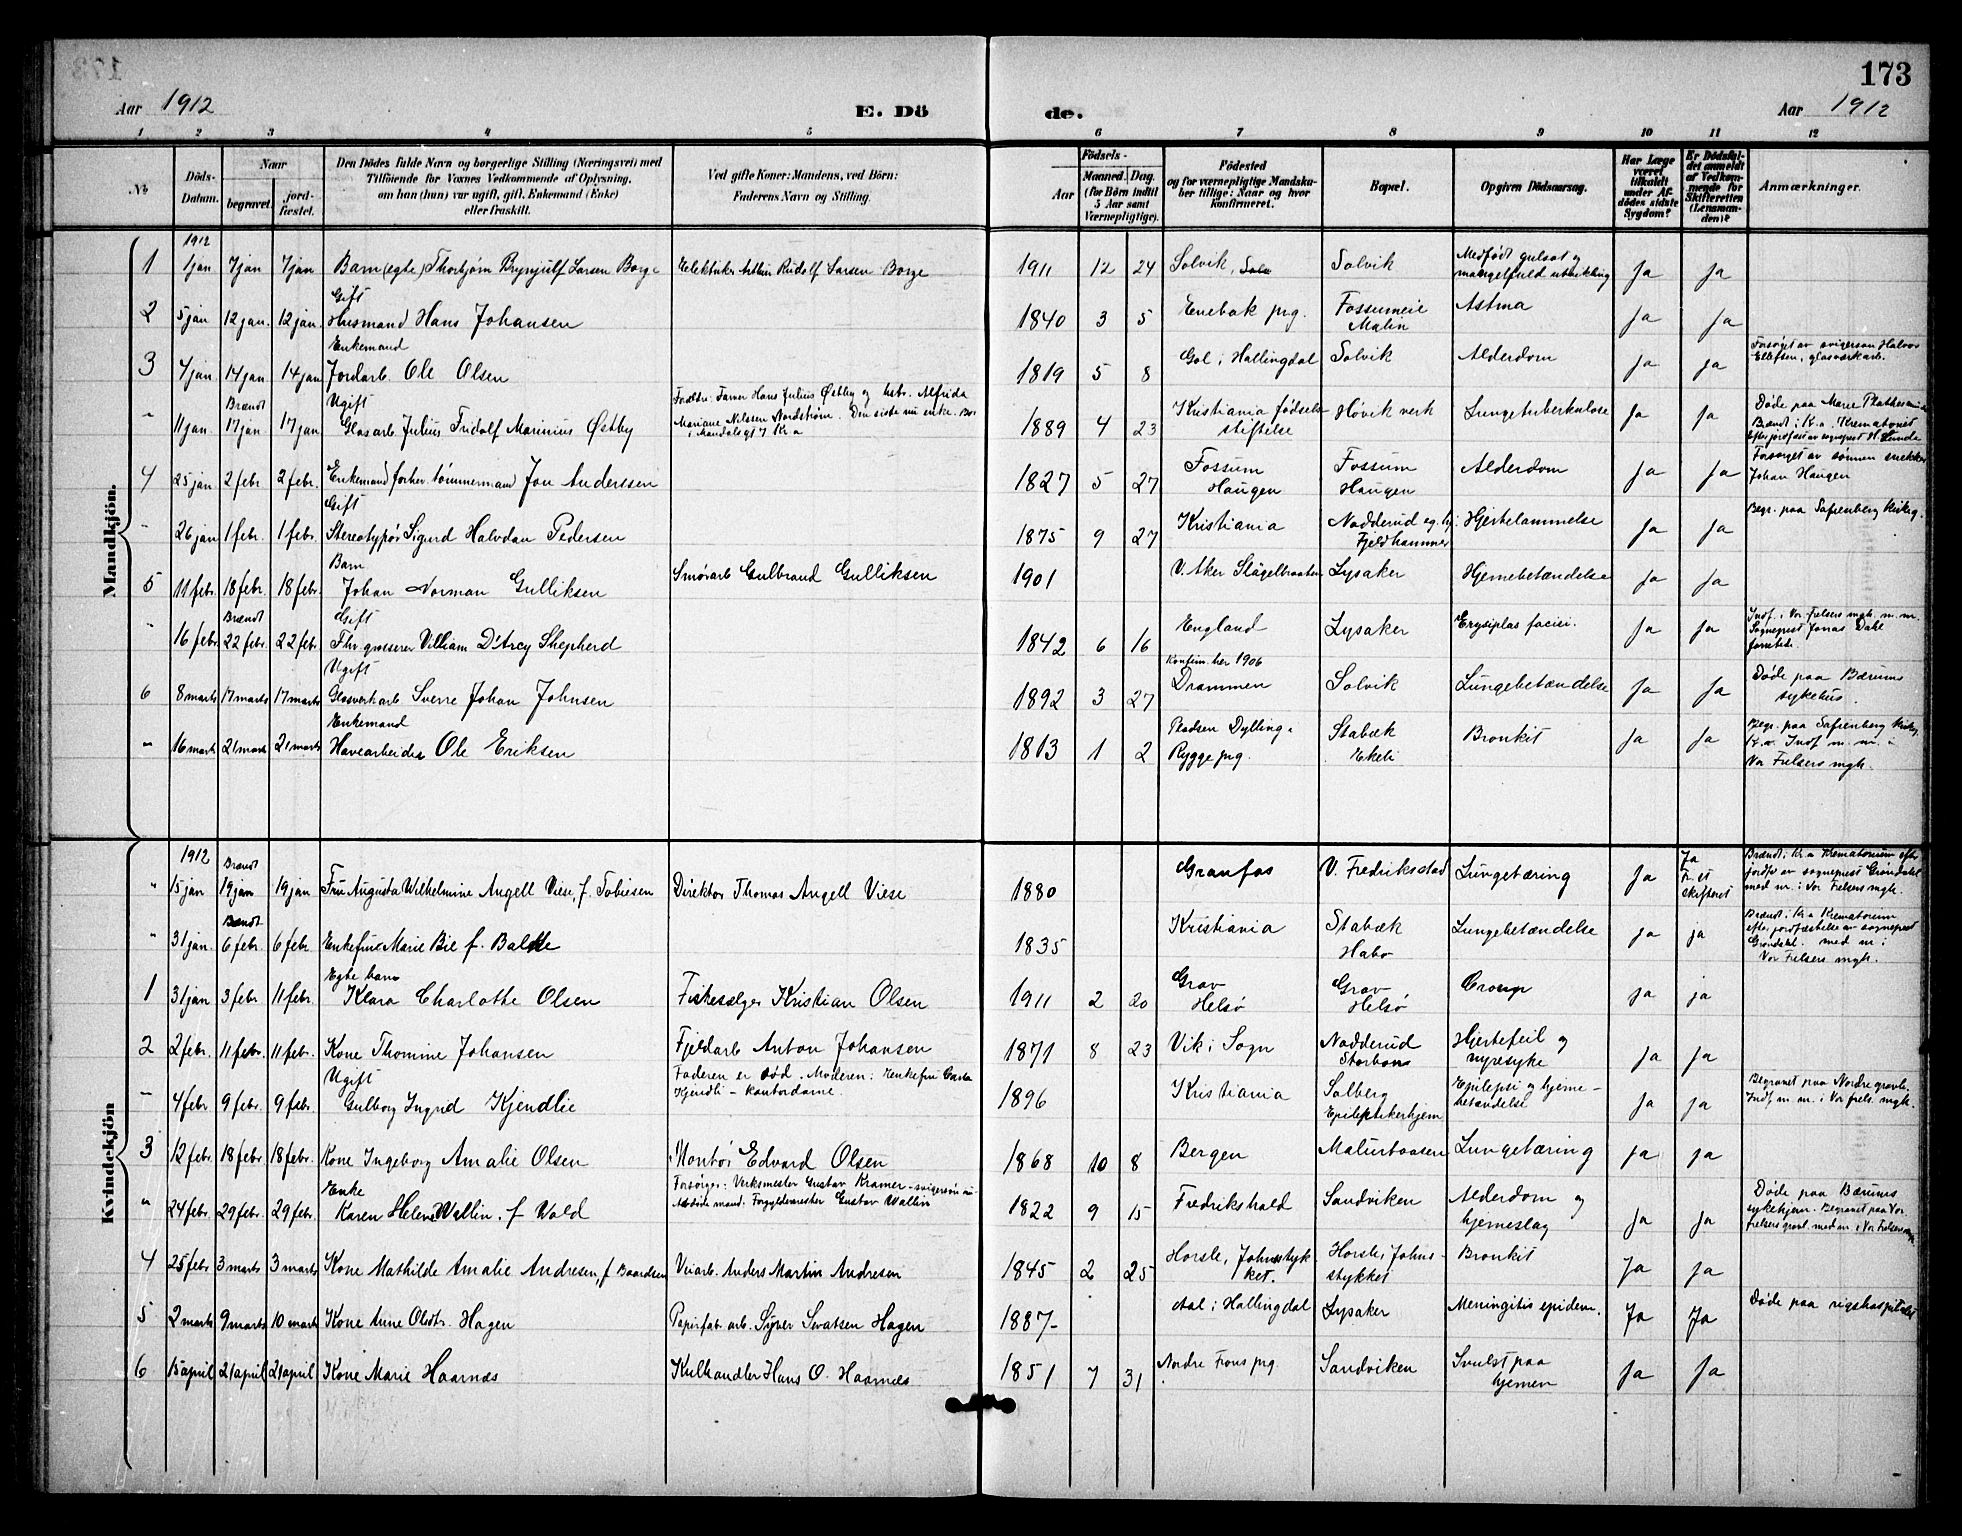 173
Aar 1912
E. Dö
de.
Aar 1912
1 2 3 4 5 6 7 8 9 10 11 12
No
Döds-Datum.
Naar
begravet.
jordfæstet.
Den Dödes fulde Navn og borgerlige Stilling (Næringsvei) med
Tilföiende for Voxnes Vedkommende af Oplysning,
om han (hun) var ugift, gift, Enkemand (Enke)
eller fraskilt.
Ved gifte Koner: Mandens, ved Börn:
Faderens Navn og Stilling.
Födsels-
Aar
Maaned. Dag.
(for Börn indtil
5 Aar samt
Værnepligtige).
Födested
og for værnepligtige Mandskaber tillige: Naar og hvor
konfirmeret.
Bopæl.
Opgiven Dödsaarsag.
Har Læge
været
tilkaldt
under Afdödes sidste
Sygdom?
Er Dödsfaldet anmeldt
af Vedkommende for
Skifteretten
(Lensmanden)?
Anmærkninger.
Mandkjön.
1912
1 1 jan 7 jan 7 jan Barn (egte) Thorbjørn Brynjulf Larsen Borge Elektriker Arthur Rudolf Larsen Borge 1911 12 24 Solvik, Solvik Medfødt gulsot og mangelfuld utvikling Ja Ja
Gift
2 5 jan 12 jan. 12 jan. Husmand Hans Johansen 1840 3 5 Enebak prg. Fossumeie Malin Astma Ja Ja
Enkemand
3 4 jan 14 jan. 14 jan Jordarb Ole Olsen 1819 5 8 Gol i Hallingdal Solvik Alderdom Ja Ja Forsøget av svigersøn Halvor Ellefsen, glasverkarb.
Brændt Ugift
" 11 jan. 17 jan. 17 jan Glasarb. Julius Fridolf Marinius Østby Foreldre: Farver Hans Julius Østby og hstr. Alfrida Mariane Nilssen Nordstrøm. Den siste nu enke. Bor i Mandalsgt 7 Kr.a 1889 4 23 Kristiania fødselsstiftelse Høvik verk Lungetuberkulose Ja Ja Døde paa Marie Brændt i Kr.a. Krematoriet Efter jordfæst av sogneprest H. Lunde
4 25 jan 2 febr 2 febr. Enkemand forhv. tømmermand Jon Anderssen 1827 5 27 Fossum Haugen Fossum Haugen Alderdom Ja Ja Forsørget av sønnen snekker Johan Haugen
Gift
" 26 jan 1 febr. 1 febr. Stereotypør Sigurd Halvdan Pedersen 1875 9 27 Kristiania Nadderud Fjeldhammer Hjertelammelse Ja Ja Begr. paa Sofienberg kirkeg.
Barn
5 11 febr. 18 febr. 18 febr. Johan Norman Gulliksen Smørarb Gulbrand Gulliksen 1901 V. Aker Slagelbraaten Lysaker Hjernebetændelse Ja Ja
Brændt Gift
" 16 febr. 22 febr 22 febr Villiam D'Arcy Shepherd 1842 6 16 England Lysaker Erysiplas faciei. Ja Ja Indf. i Vor frelsers mgk. m. m. Sogneprest Jonas Dahl forrettede
Ugift
6 8 marts 17 marts 17 marts Glasverkarb Sverre Johan Johnsen 1892 3 27 Konfirm. her 1906 Drammen Solvik Lungebetændelse Ja Ja Døde paa Bærums sykehus.
Enkemand
" 16 marts 21 marts 21 marts Havearbeider Ole Eriksen 1813 1 2 Pladsen Dylling i Rygge prg. Stabæk Ekeli Bronkit Ja Ja Begr. paa Sofienberg kirkeg. Kr.a. Indf. m. m. i Vor Frelsers mgk.
Kvindekjön
1912 Brændt
" 15 jan 19 jan 19 jan Fru Augusta Wilhelmine Angell Viese, f. Tobiesen Direktør Thomas Angell Viese 1880 Granfos V. Fredriksstad Lungetæring Ja Ja F. et skifteret Brændt i Kr.a Krematorium efter jordfv av sogneprest Grøndahl med nr. i Vor Frelsers mgk.
Brændt
" 31 jan. 6 febr. 6 febr. Enkefru Marie Bie f. Balke 1835 Kristiania Stabæk Habo Lungebetændelse Ja ja Brændt i Kr.a Krematorium efter jordfæstelse av sogneprest Grøndahl. med nr i Vor Frelsers mgk.
Egte barn
1 31 jan 3 febr 11 febr. Klara Charlotte Olsen Fiskesælger Kristian Olsen 1911 2 20 Grav Helsø Grav Helsø Croup ja ja
2 2 febr. 11 febr. 11 febr. Kone Thomine Johansen Fjeldarb Anton Johansen 1871 8 23 Vik i Sogn Nadderud Hjertefeil og nyresyke Ja Ja
Ugift
" 4 febr 9 febr. 9 febr. Gulborg Ingrid Kjendlie Faderen er død. Moderen: Enkefru Kjendli - kontordame. 1896 Kristiania Solberg Epileptikerhjem Epilepsi og hjernebetændelse Ja Ja Begravet paa Nordre gravl. Indf m nr. i Vor frels. mgk.
3 12 febr. 18 febr. 18 febr. Kone Ingeborg Amalie Olsen Montør Edvard Olsen 1868 10 8 Bergen Malurtaasen Lungetæring Ja Ja
Enke
" 24 febr. 29 febr. 29 febr. Karen Helene Wallin, f Wold Forsørger: Verksmester Gustav Kramer - svigersøn Avdøde mand: Forgyldermester Gustav Wallin 1822 9 15 Fredrikshald Sandviken Alderdom og hjerneslag Ja Ja Døde paa Bærums sykehjem. Begravet paa Vor frelsers gravl. med nr. i Vor Frelsers mgk
4 25 febr 3 marts 3 marts Kone Mathilde Amalie Andresen, f Baardsen Veiarb. Anders Martin Andresen 1845 2 25 Horsle, Johnsstykket. Horsle, Johnsstykket Bronkit Ja Ja
5 2 marts 9 marts 10 marts Kone Anne Olsdtr. Hagen Papirfab. arb. Syver Svatsen Hagen 1887 Aal i Hallingdal Lysaker Meningitis epidem. Ja Ja Døde paa rigshospitalet
6 15 april 21 april 21 april Kone Marie Haarnæs Kulhandler Hans O. Haarnæs 1851 7 31 Nordre Frons prg. Sandviken Svulst paa hjernen Ja Ja